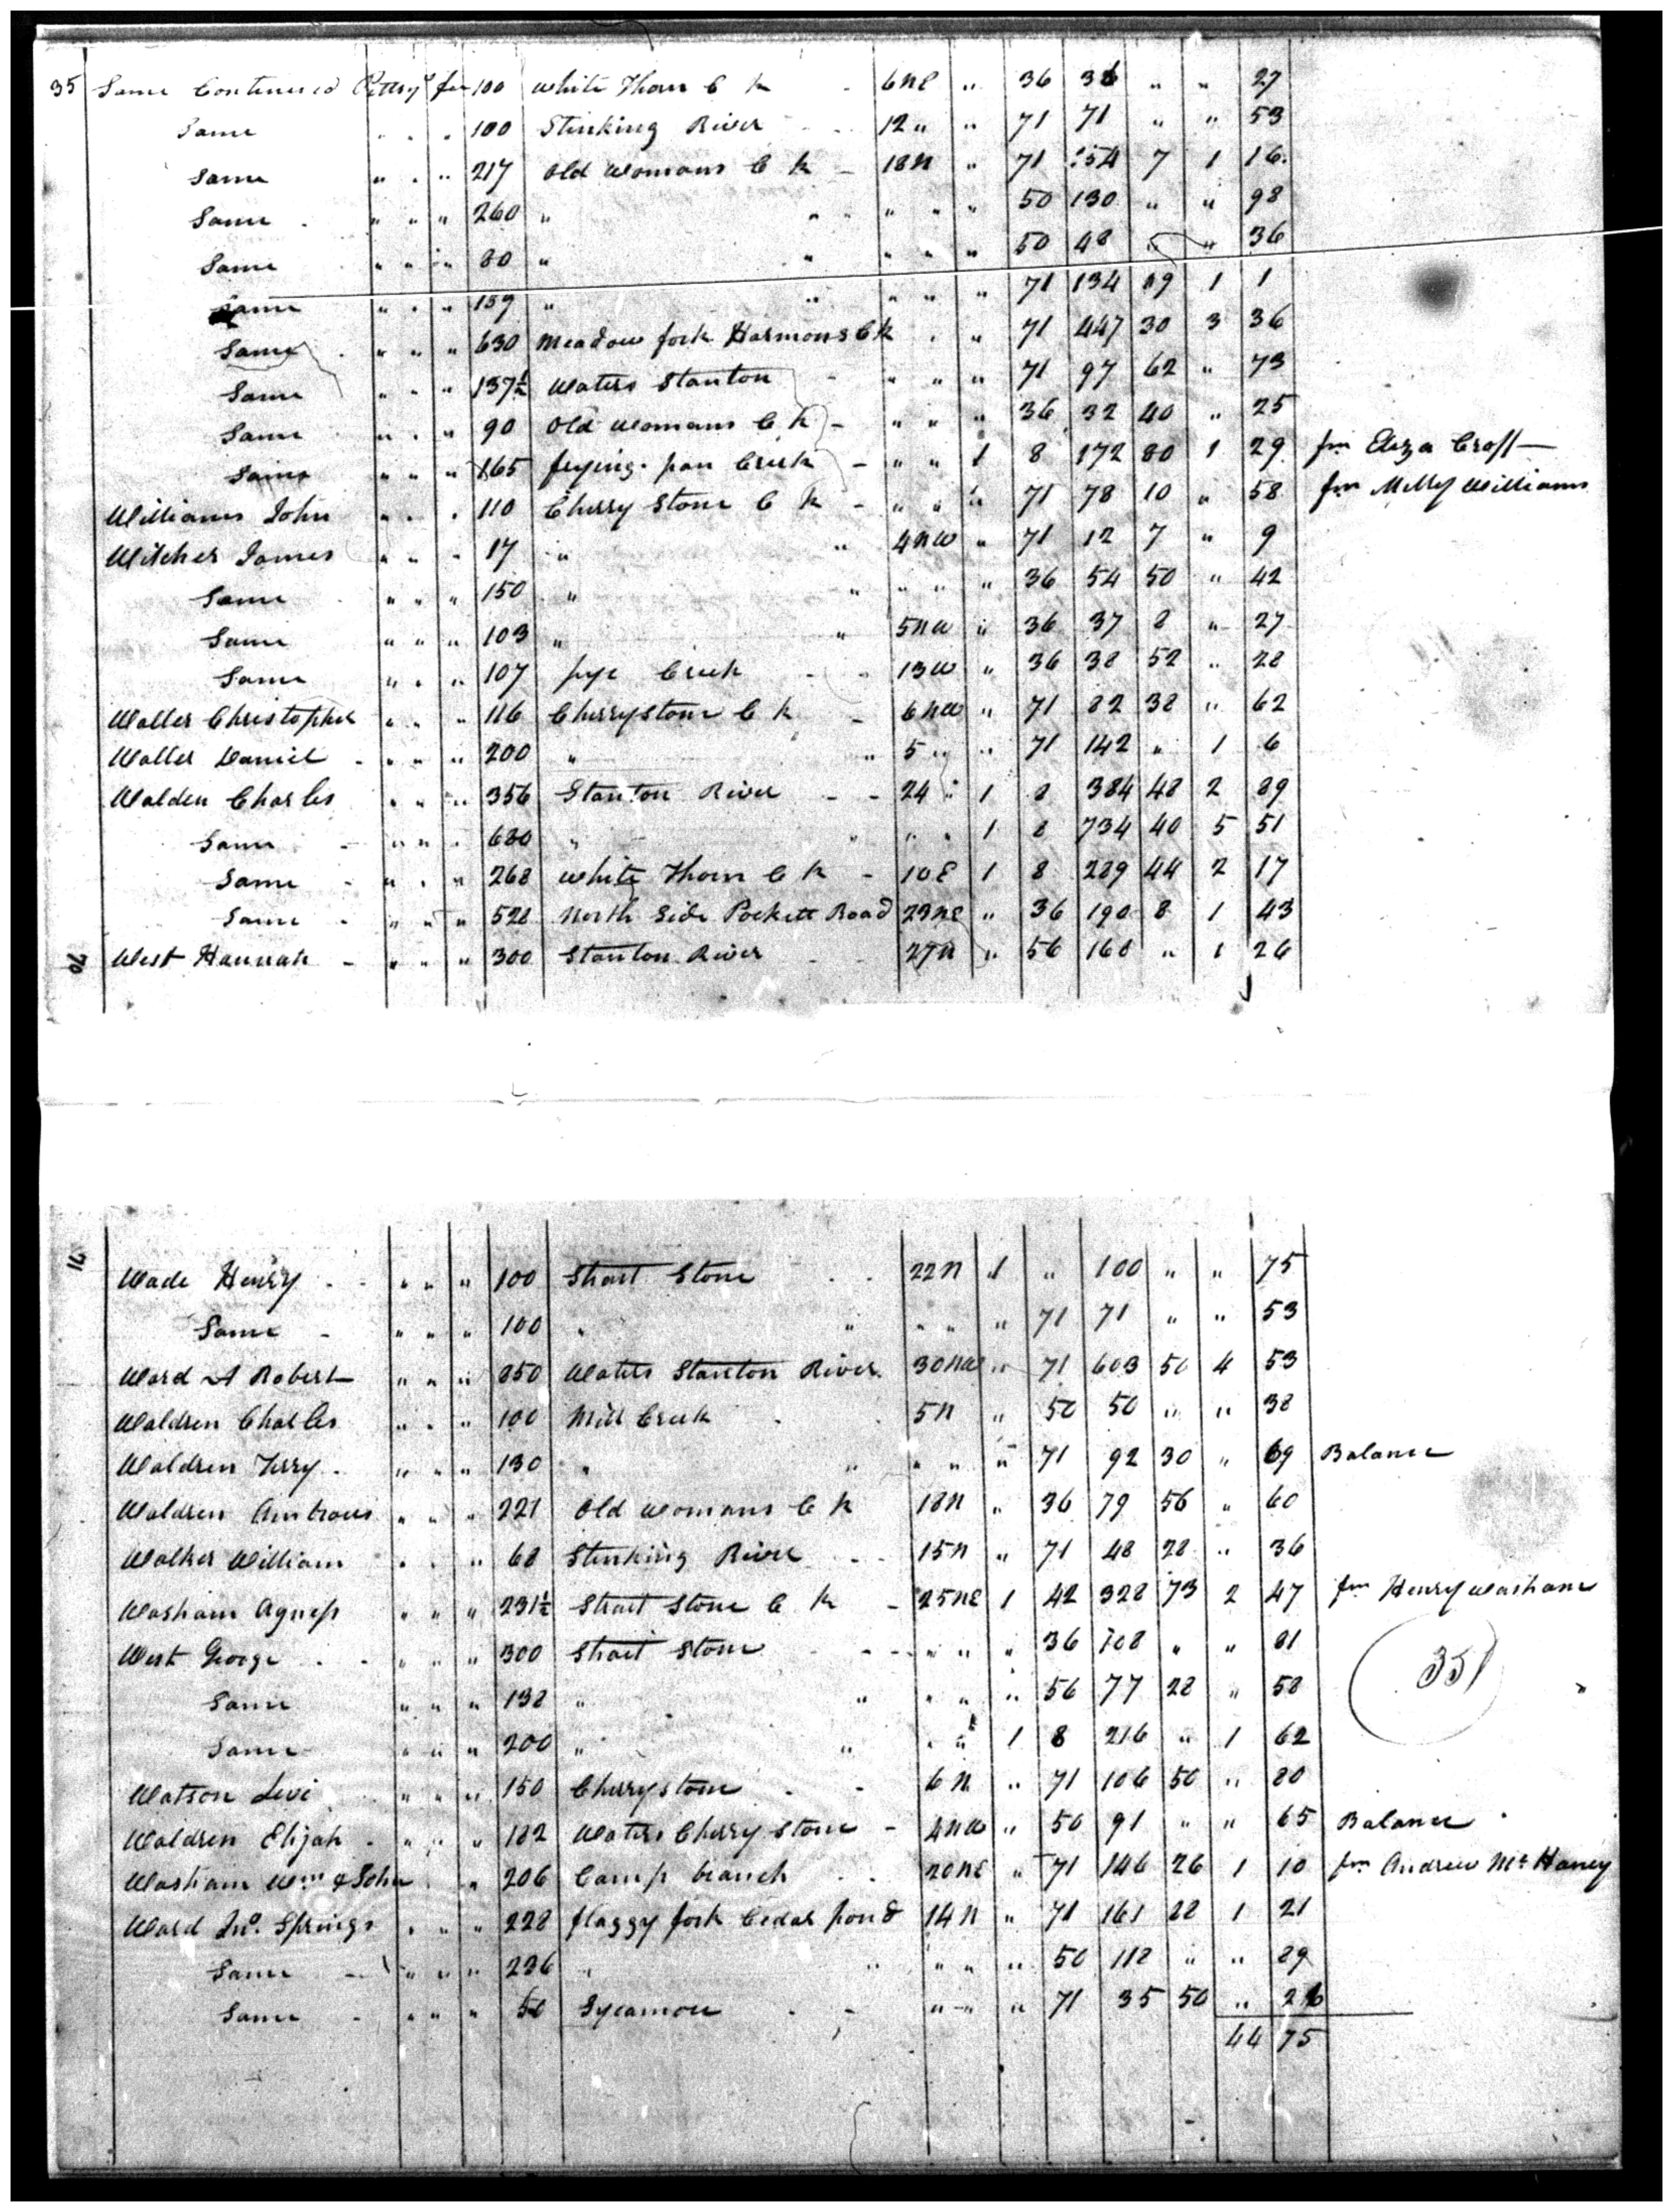 35 Same Continued Pittsy fee 100 White Thorn C k - 6 NE " 36 36 " " 27
Same " " " 100 Stinking River 12 " " 71 71 " " 53
Same " " " 217 Old Womans C k - 18 N " 71 154 7 1 16
Same " " " 260 " " " " " 50 130 " " 98
Same " " " 80 " " " " " 50 48 " " 36
Same " " " 189 " " " " " 71 134 19 1 1
Same " " " 630 Meadow fork Harmons C k " " 71 447 30 3 36
Same " " " 137½ Waters Stanton - " " " 71 97 62 " 73
Same " " " 90 Old Womans C k - " " " 36 32 40 " 25
Same " " " 165 frying pan Creek - " " 1 8 172 80 1 29 fm Eliza Croff
Williams John " " " 110 Cherry Stone C k - " " " 71 78 10 " 58 fm Milly Williams
Witcher James " " " 17 " " 4 NW " 71 12 7 " 9
Same " " " 150 " " " " " 36 54 50 " 42
Same " " " 103 " " 5 NW " 36 37 8 " 27
Same " " " 107 pye Creek - - 13 W " 36 38 52 " 28
Waller Christopher " " " 116 Cherrystone C k - 6 NW " 71 82 38 " 62
Waller Daniel - " " " 200 " " 5 " " 71 142 " 1 6
Walden Charles " " " 356 Stanton River - - 24 " 1 8 384 48 2 89
Same - " " " 680 " " " " 1 8 734 40 5 51
Same - " " " 268 White Thorn C k - 10 E 1 8 289 44 2 17
Same - " " " 528 North Side Pockett Road 23 NE " 36 190 8 1 43
70 West Hannah - " " " 300 Stanton River - - 27 N " 56 168 " 1 26
71 Wade Henry - - " " " 100 Strait Stone - - 22 N 1 " 100 " " 75
Same - " " " 100 " " " " " 71 71 " " 53
Ward A Robert " " " 850 Waters Stanton River 30 NW " 71 603 50 4 53
Waldren Charles " " " 100 Mill Creek - - 5 N " 50 50 " " 38
Waldren Terry - " " " 130 " " " " " 71 92 30 " 69 Balance
Waldren Ambrous " " " 221 Old Womans C k 18 N " 36 79 56 " 60
Walker William " " " 68 Stinking River - - 15 N " 71 48 28 " 36
Washam Agness " " " 231½ Strait Stone C k - 25 NE 1 42 328 73 2 47 fm Henry Washam
West George - - " " " 300 Strait Stone - - " " " 36 108 " " 81
351
Same " " " 138 " " " " " 56 77 28 " 58
Same " " " 200 " " " " 1 8 216 " 1 62
Watson Levi " " " 150 Cherrystone - - 6 N " 71 106 50 " 80
Waldren Elijah - " " " 182 Waters Cherry Stone - 4 NW " 50 91 " " 65 Balance
Washam Wm & John " " 206 Camp branch - - 20 NE " 71 146 26 1 10 fm Andrew McHaney
Ward Jno. Springs " " " 228 flaggy fork Cedar pond 14 N " 71 161 88 1 21
Same - " " " 236 " " " " " 50 118 " " 89
Same - " " " 50 Sycamore - - " " " 71 35 50 " 26
44 75